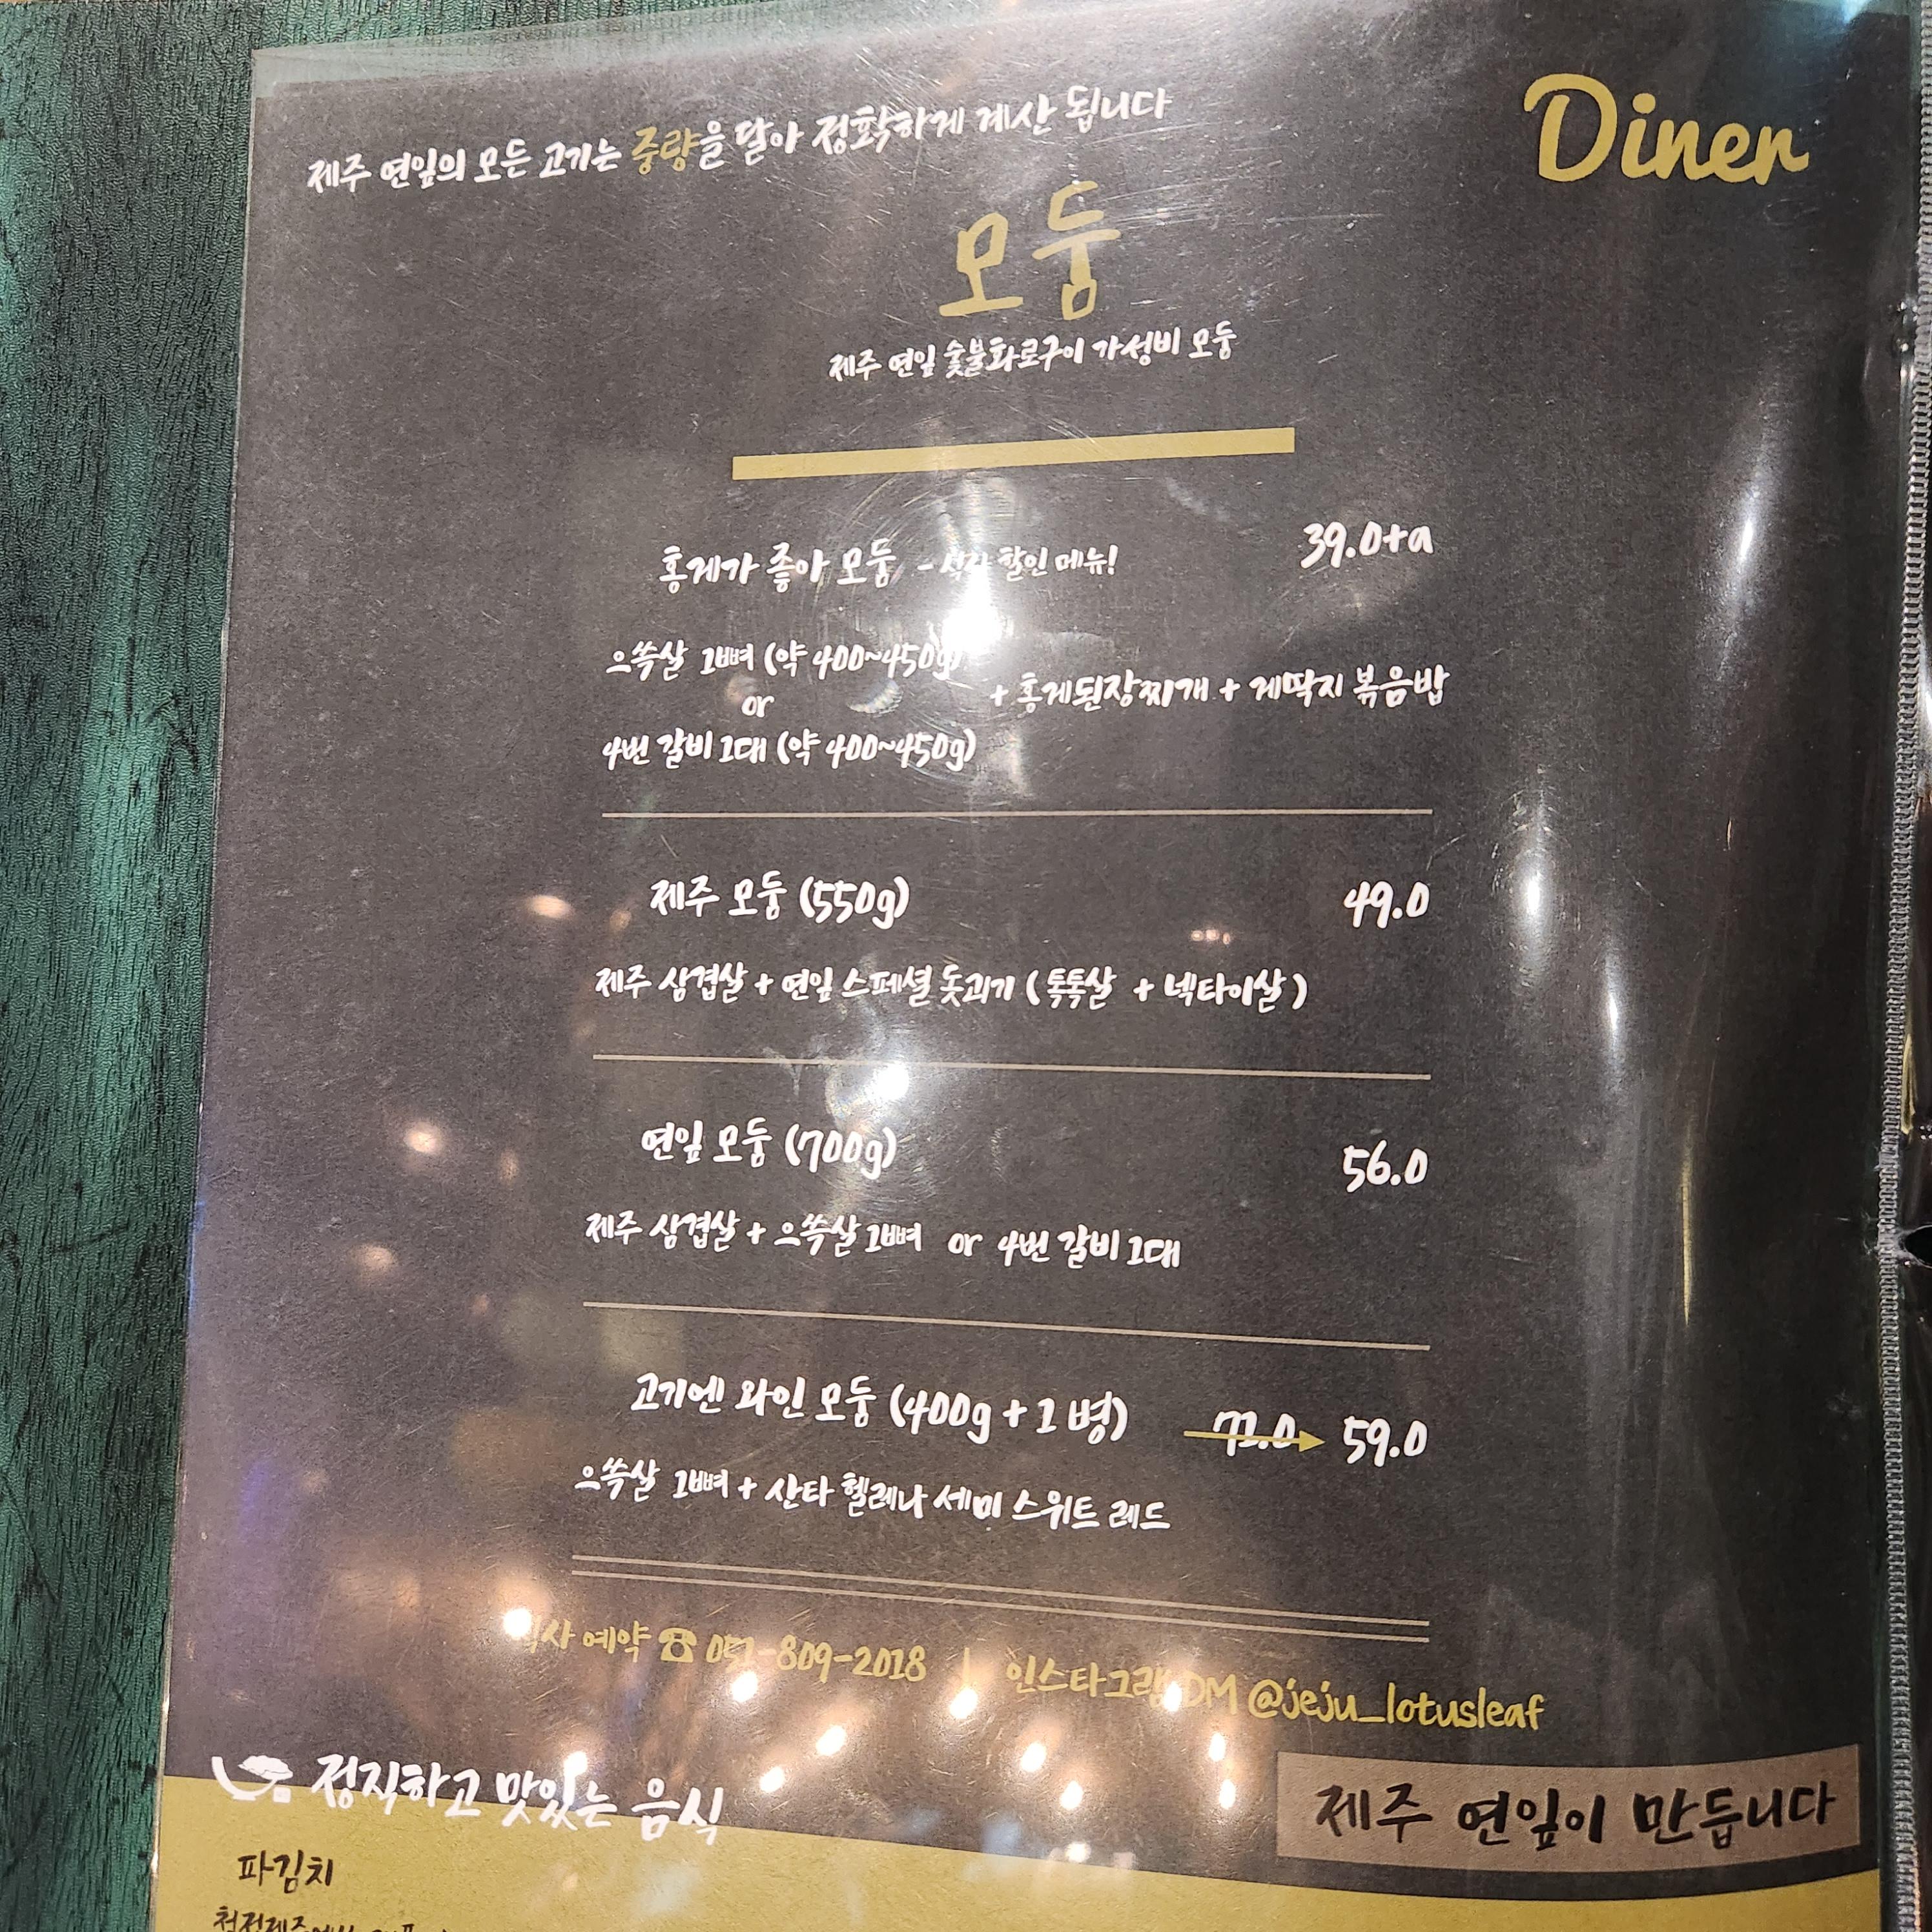 Diner
제주 연잎의 모든 고기는 중량을 달아 정확하게 계산 됩니다
모둠
제주 연잎 숯불화로구이 가성비 모둠
홍게가 좋아 모둠 - 식사 할인 메뉴! 39.0+a
으쓱살 1뼈 (약 400~450g)
or
+ 홍게된장찌개 + 게딱지 볶음밥
4번 갈비 1대 (약 400~450g)
제주 모둠 (550g) 49.0
제주 삼겹살 + 연잎 스페셜 돗괴기 ( 톡톡살 + 넥타이살 )
연잎 모둠 (700g) 56.0
제주 삼겹살 + 으쓱살 1뼈 or 4번 갈비 1대
고기엔 와인 모둠 (400g + 1 병) 72.0 59.0
으쓱살 1뼈 + 산타 헬레나 세미 스위트 레드
식사 예약 ☎ 051-809-2018 | 인스타그램 DM @jeju_lotusleaf
정직하고 맛있는 음식
제주 연잎이 만듭니다
파김치